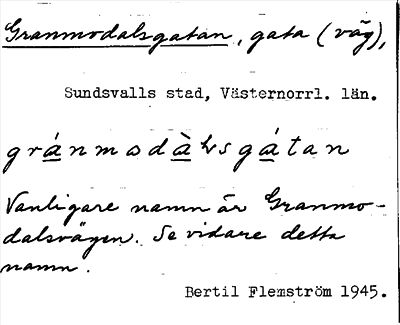 Granmodalsgatan, gata (väg),
Sundsvalls stad, Västernorrl. län.
gránmodàlsgátan
Vanligare namn är Granmo-
dalsvägen. Se vidare detta
namn.
Bertil Flemström 1945.